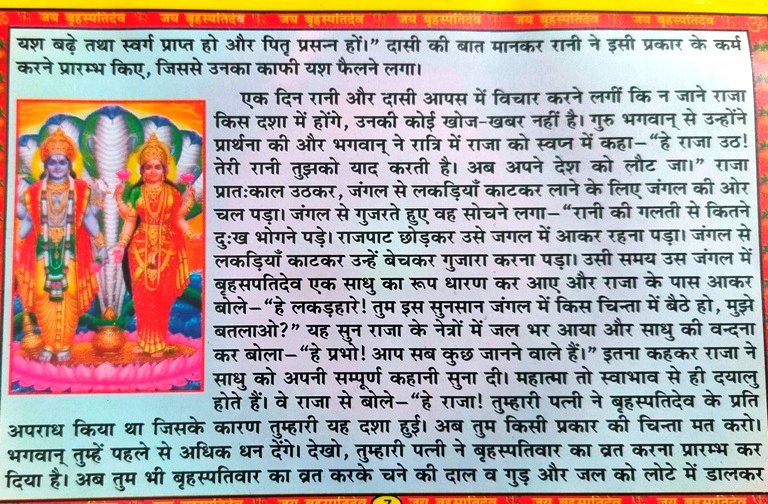 जय बृहस्पतिदेव जय बृहस्पतिदेव जय बृहस्पतिदेव जय बृहस्पतिदेव जय बृहस्पतिदेव जय बृहस्पतिदेव
यश बढ़े तथा स्वर्ग प्राप्त हो और पितृ प्रसन्न हों।” दासी की बात मानकर रानी ने इसी प्रकार के कर्म
करने प्रारम्भ किए, जिससे उनका काफी यश फैलने लगा।
एक दिन रानी और दासी आपस में विचार करने लगीं कि न जाने राजा
किस दशा में होंगे, उनकी कोई खोज-खबर नहीं है। गुरु भगवान् से उन्होंने
प्रार्थना की और भगवान् ने रात्रि में राजा को स्वप्न में कहा–“हे राजा उठ!
तेरी रानी तुझको याद करती है। अब अपने देश को लौट जा।” राजा
प्रातःकाल उठकर, जंगल से लकड़ियाँ काटकर लाने के लिए जंगल की ओर
चल पड़ा। जंगल से गुजरते हुए वह सोचने लगा–“रानी की गलती से कितने
दुःख भोगने पड़े। राजपाट छोड़कर उसे जगल में आकर रहना पड़ा। जंगल से
लकड़ियाँ काटकर उन्हें बेचकर गुजारा करना पड़ा। उसी समय उस जंगल में
बृहसपतिदेव एक साधु का रूप धारण कर आए और राजा के पास आकर
बोले–“हे लकड़हारे! तुम इस सुनसान जंगल में किस चिन्ता में बैठे हो, मुझे
बतलाओ?” यह सुन राजा के नेत्रों में जल भर आया और साधु की वन्दना
कर बोला–“हे प्रभो! आप सब कुछ जानने वाले हैं।” इतना कहकर राजा ने
साधु को अपनी सम्पूर्ण कहानी सुना दी। महात्मा तो स्वाभाव से ही दयालु
होते हैं। वे राजा से बोले–“हे राजा! तुम्हारी पत्नी ने बृहस्पतिदेव के प्रति
अपराध किया था जिसके कारण तुम्हारी यह दशा हुई। अब तुम किसी प्रकार की चिन्ता मत करो।
भगवान् तुम्हें पहले से अधिक धन देंगे। देखो, तुम्हारी पत्नी ने बृहस्पतिवार का व्रत करना प्रारम्भ कर
दिया है। अब तुम भी बृहस्पतिवार का व्रत करके चने की दाल व गुड़ और जल को लोटे में डालकर
जय बृहस्पतिदेव जय बृहस्पतिदेव 7 जय बृहस्पतिदेव जय बृहस्पतिदेव